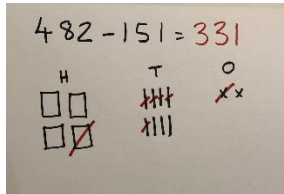 482-151=331
H T O